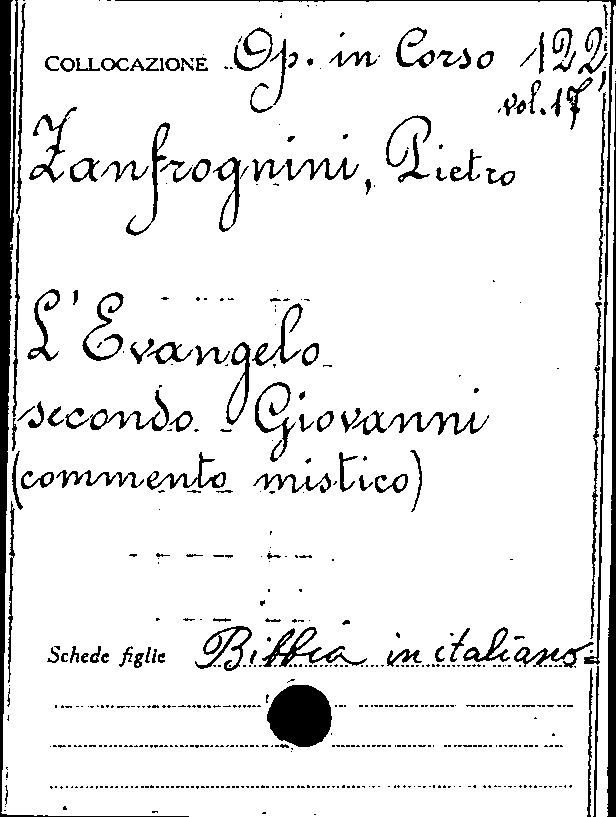 COLLOCAZIONE Op. in Corso 122,
vol. 17
Zanfrognini, Pietro
L'Evangelo
secondo Giovanni
(commento mistico)
Schede figlie Bibbia in italiano=